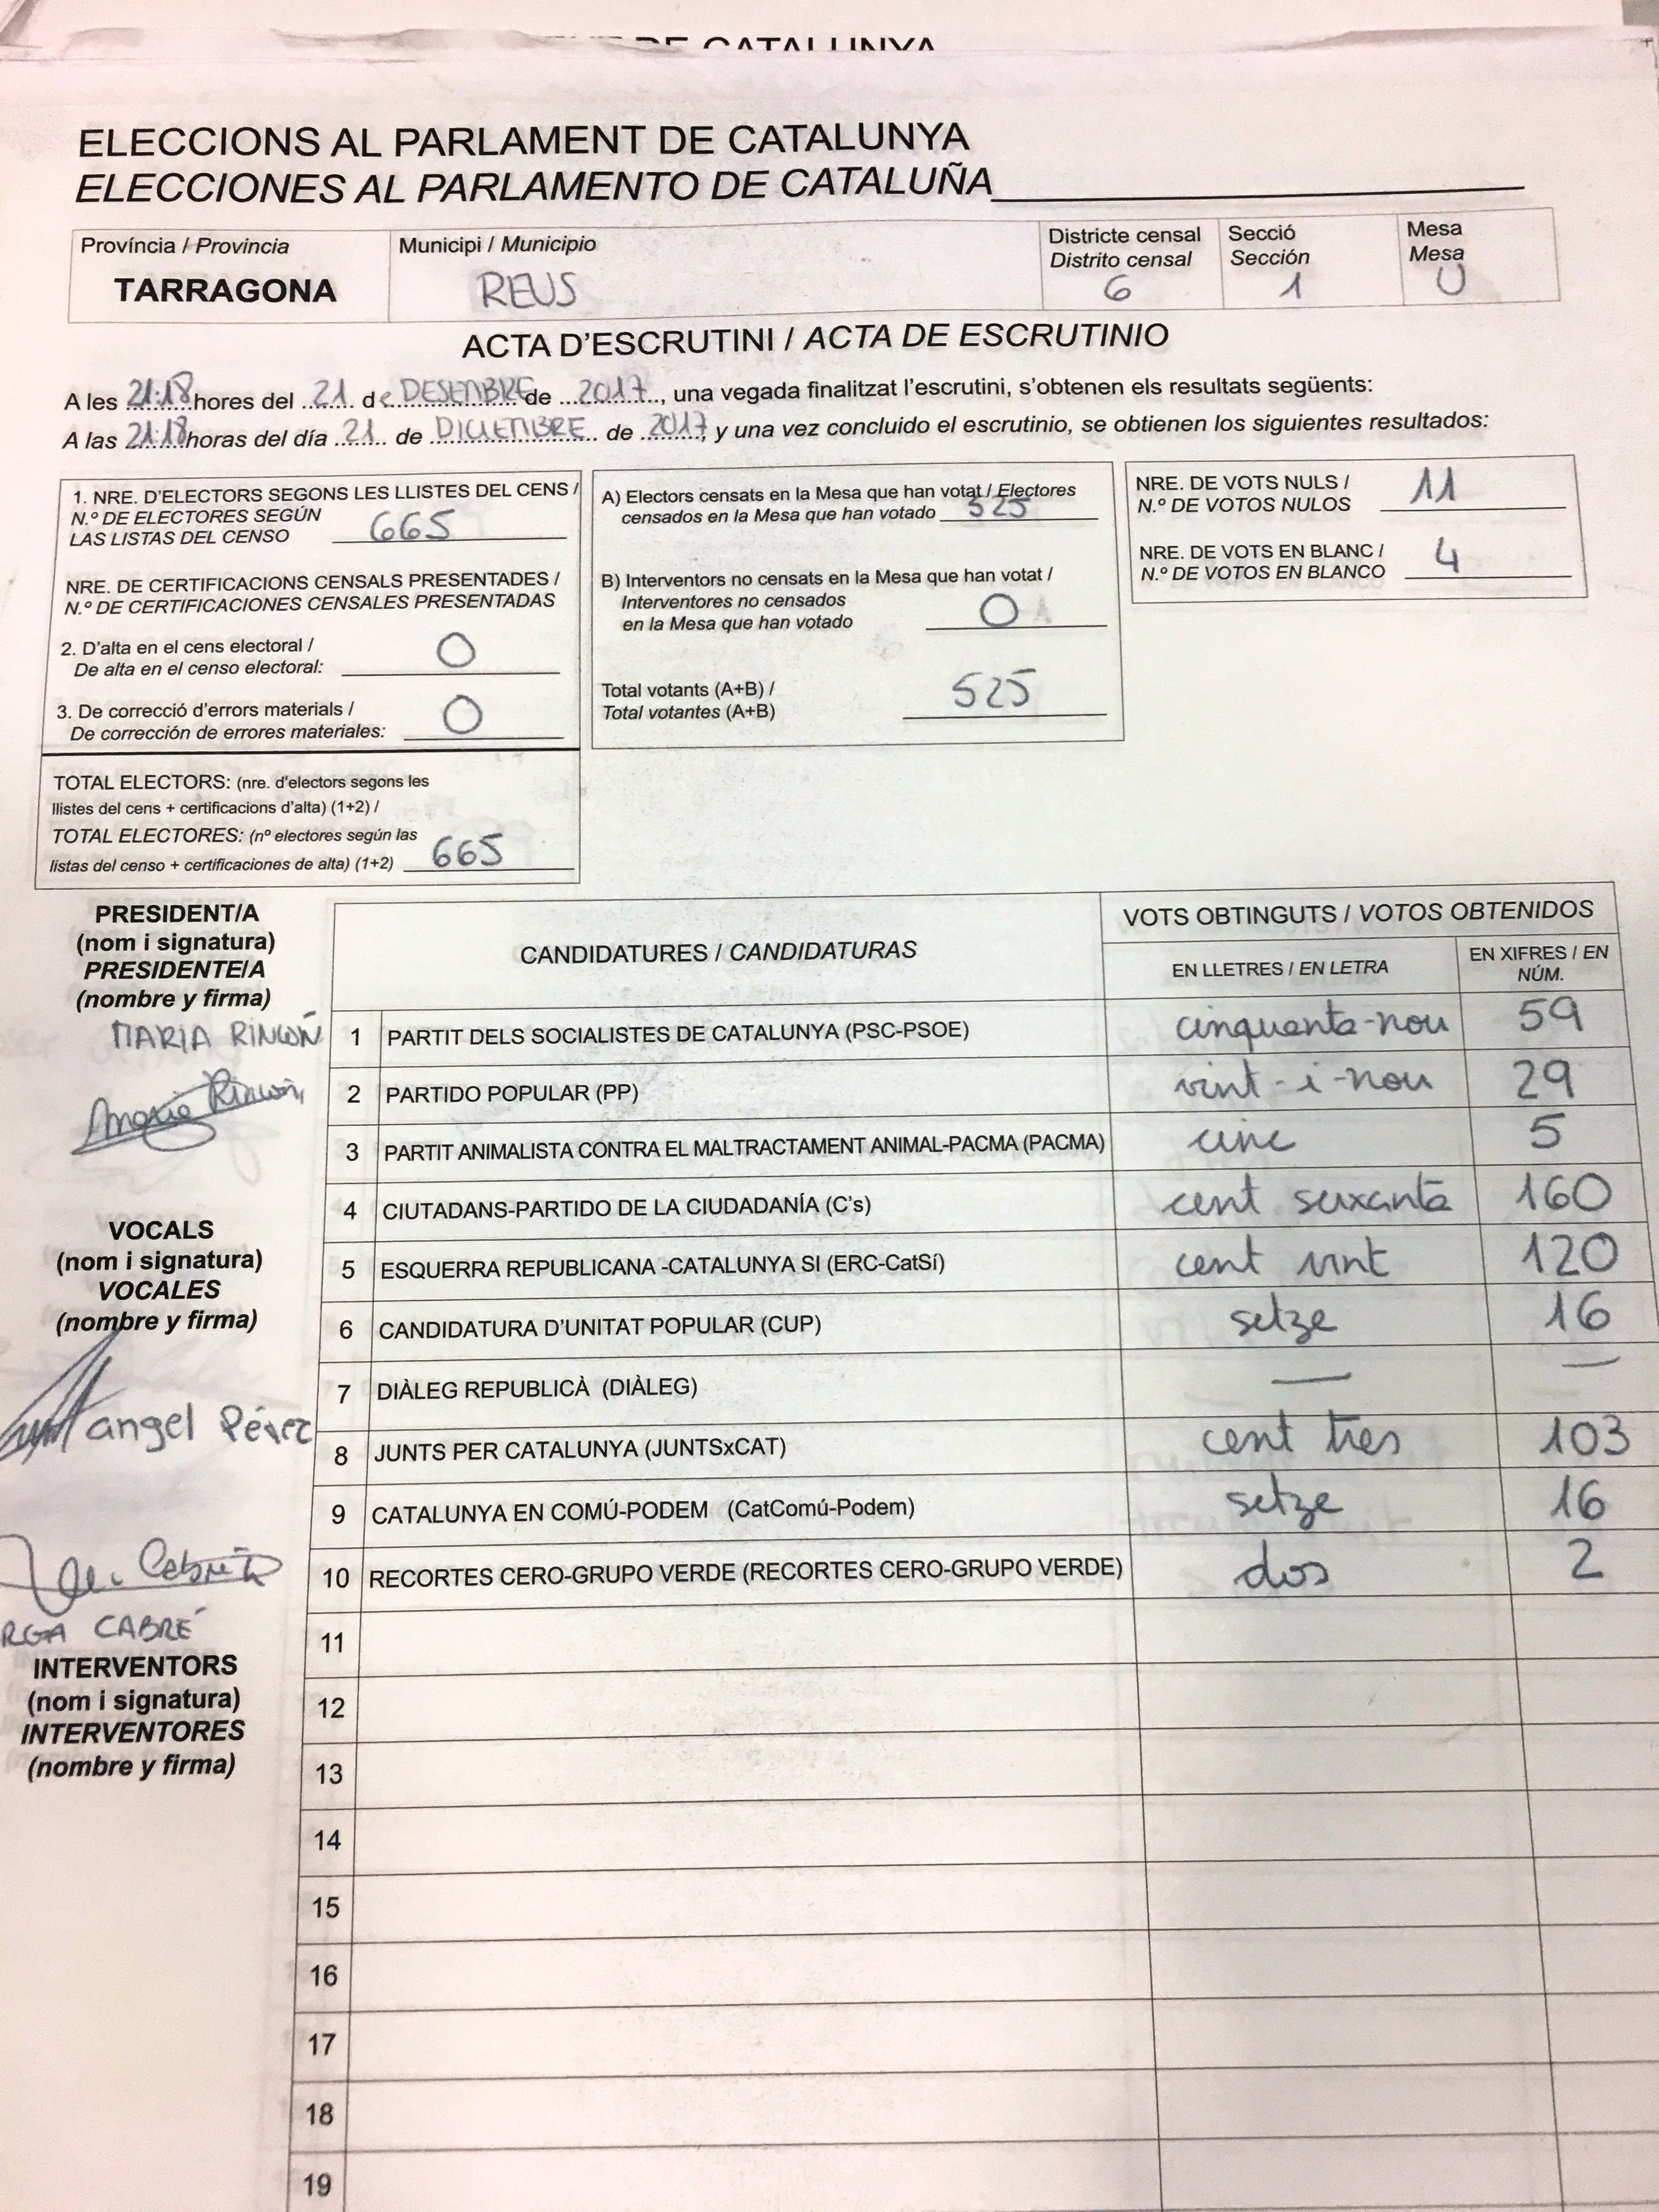 ELECCIONS AL PARLAMENT DE CATALUNYA
ELECCIONES AL PARLAMENTO DE CATALUÑA
Província / Provincia
TARRAGONA
Municipi / Municipio
REUS
Districte censal
Distrito censal
6
Secció
Sección
1
Mesa
Mesa
U
ACTA D'ESCRUTINI / ACTA DE ESCRUTINIO
A les 21:18 hores del 21 de DESEMBRE de 2017, una vegada finalitzat l'escrutini, s'obtenen els resultats següents:
A las 21:18 horas del día 21 de DICIEMBRE de 2017, y una vez concluido el escrutinio, se obtienen los siguientes resultados:
1. NRE. D'ELECTORS SEGONS LES LLISTES DEL CENS /
N.º DE ELECTORES SEGÚN
LAS LISTAS DEL CENSO 665
NRE. DE CERTIFICACIONS CENSALS PRESENTADES /
N.º DE CERTIFICACIONES CENSALES PRESENTADAS
2. D'alta en el cens electoral /
De alta en el censo electoral: 0
3. De correcció d'errors materials /
De corrección de errores materiales: 0
TOTAL ELECTORS: (nre. d'electors segons les
llistes del cens + certificacions d'alta) (1+2) /
TOTAL ELECTORES: (nº electores según las
listas del censo + certificaciones de alta) (1+2) 665
A) Electors censats en la Mesa que han votat / Electores
censados en la Mesa que han votado 525
B) Interventors no censats en la Mesa que han votat /
Interventores no censados
en la Mesa que han votado 0
Total votants (A+B) /
Total votantes (A+B) 525
NRE. DE VOTS NULS /
N.º DE VOTOS NULOS 11
NRE. DE VOTS EN BLANC /
N.º DE VOTOS EN BLANCO 4
PRESIDENT/A
(nom i signatura)
PRESIDENTE/A
(nombre y firma)
MARIA RINCÓN
Maria Rincón
VOCALS
(nom i signatura)
VOCALES
(nombre y firma)
angel Pérez
CABRÉ
INTERVENTORS
(nom i signatura)
INTERVENTORES
(nombre y firma)
CANDIDATURES / CANDIDATURAS
VOTS OBTINGUTS / VOTOS OBTENIDOS
EN LLETRES / EN LETRA
EN XIFRES / EN
NÚM.
1 PARTIT DELS SOCIALISTES DE CATALUNYA (PSC-PSOE) cinquanta-nou 59
2 PARTIDO POPULAR (PP) vint-i-nou 29
3 PARTIT ANIMALISTA CONTRA EL MALTRACTAMENT ANIMAL-PACMA (PACMA) cinc 5
4 CIUTADANS-PARTIDO DE LA CIUDADANÍA (C's) cent seixanta 160
5 ESQUERRA REPUBLICANA -CATALUNYA SI (ERC-CatSí) cent vint 120
6 CANDIDATURA D'UNITAT POPULAR (CUP) setze 16
7 DIÀLEG REPUBLICÀ (DIÀLEG) — —
8 JUNTS PER CATALUNYA (JUNTSxCAT) cent tres 103
9 CATALUNYA EN COMÚ-PODEM (CatComú-Podem) setze 16
10 RECORTES CERO-GRUPO VERDE (RECORTES CERO-GRUPO VERDE) dos 2
11
12
13
14
15
16
17
18
19